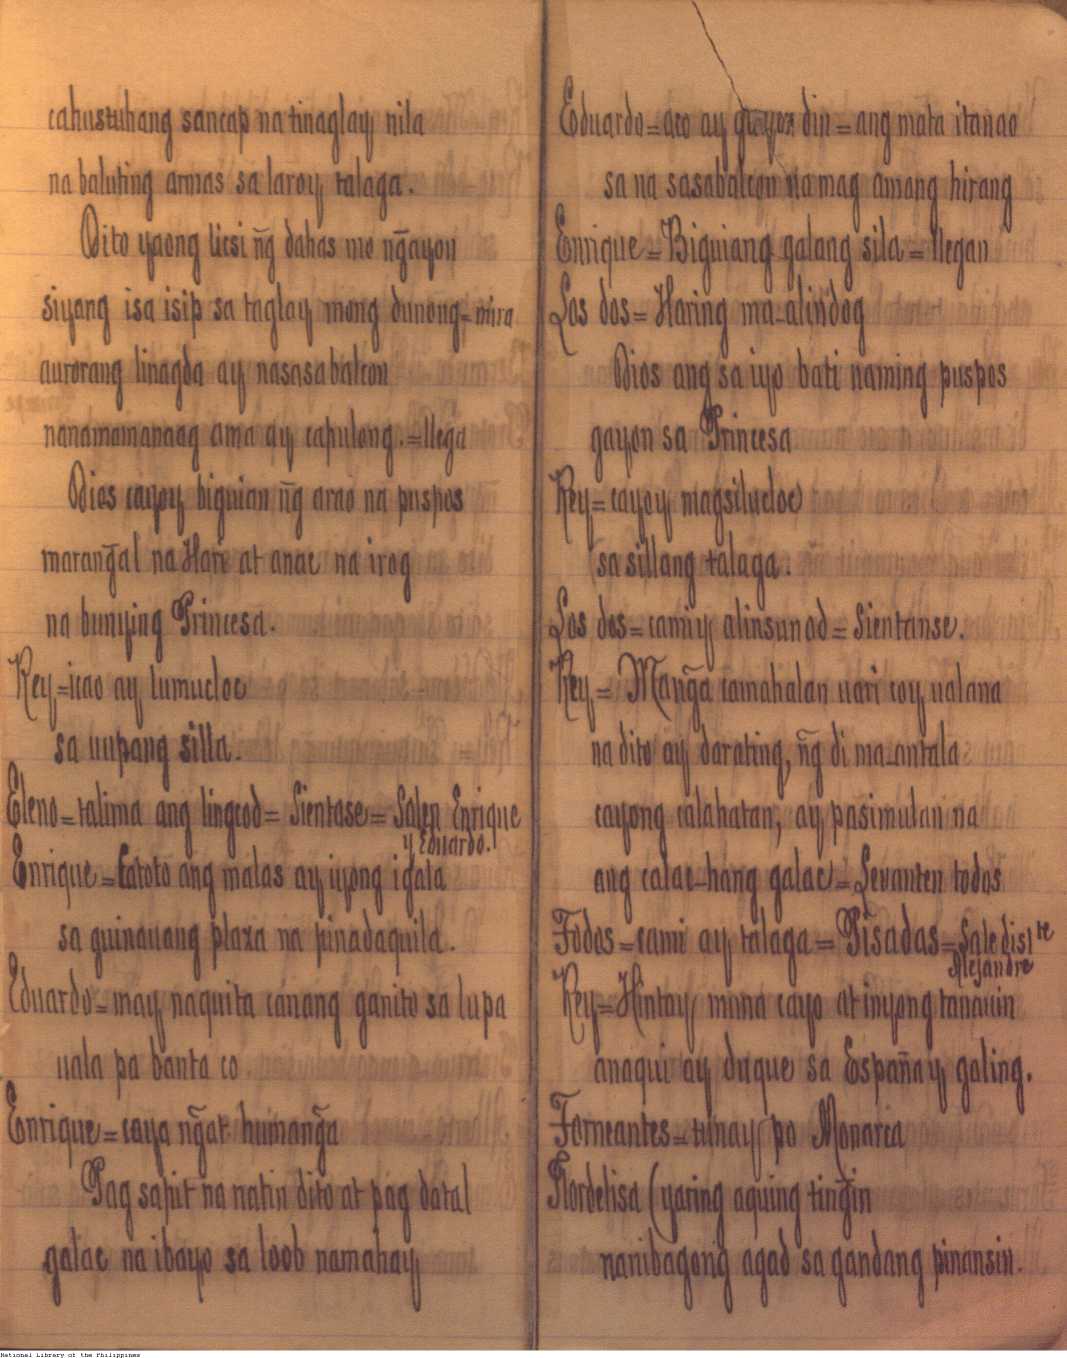 cahustuhang sancap na tinaglay nila
na baluting armas sa laroy talaga.
Dito yaong licsi ñg dahas mo ng̃ayon
siyang isa isip sa taglay mong dunong = mira
aurorang linagda ay nasasabalcon
nanamamanaag ama ay capulong. = llega
Dios cayoy biguian ñg arao na puspos
marang̃al na Hare at anac na irog
na bunying Princesa.
Rey = icao ay lumucloc
sa uupang silla.
Eleno = talima ang lingcod = Sientase = Salen Enrique
y Eduardo.
Enrique = totoo ang malas ay iyong igala
sa guinauang plaza na pinadaquila.
Eduardo = may naquita canang ganito sa lupa
uala pa banta co
Enrique = caya ng̃at humang̃a
Pag sapit na natin dito at pag datal
galac na ibayo sa loob namahay
Eduardo = aco ay din = ang mata itanao
sa na sasabalcon na mag amang hirang
Enrique = Biguiang galang sila = llegan
Los dos = Haring ma-alindog
Dios ang sa iyo bati naming puspos
gayon sa Princesa
Rey = cayoy magsilucloc
sa sillang talaga.
Los dos = camiy alinsunod = Sientanse.
Rey = Mang̃a camahalan uari coy ualana
na dito ay darating, ñg di ma-antala
cayong calahatan, ay pasimulan na
ang calac-hang galac = Levanten todos
Todos = cami ay talaga = Pisadas = Sale dist te
Alejandre
Rey = Hintay muna cayo at inyong tanauin
anaqui ay duque sa España y galing.
Torneantes = tunay po Monarca
Flordelisa (yaring aquing ting̃in
nanibagong agad sa gandang pinansin.
National Library of the Philippines